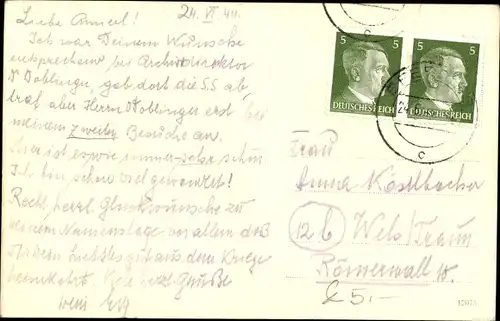 24. VI 44.
Liebe Annerl!
Ich war Deinem Wunsche
entsprechend, bei Archivdirektor
Dr Doblinger, gab dort die S.S. ab,
traf aber Herrn Dr Doblinger erst bei
meinem zweiten Besuche an.
Hier ist es wie immer sehr schön
Ich bin schon viel gewandert!
Recht herzl. Glückwünsche zu
deinem Namenstage vor allem daß
gut aus dem Kriege
heimkehrt. herzl. Grüße
5 5
DEUTSCHES REICH DEUTSCHES REICH
c
c
Frau
Anna Köstlbacher
12b Wels/Traun
Römerwall
£5.-